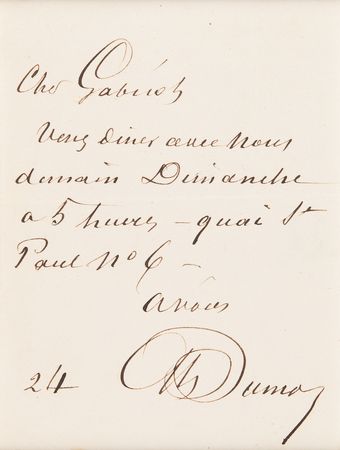 Cher Gabriel
Venez diner avec nous
demain Dimanche
a 5 heures – quai St
Paul No 6 –
a vous
24 Dumas